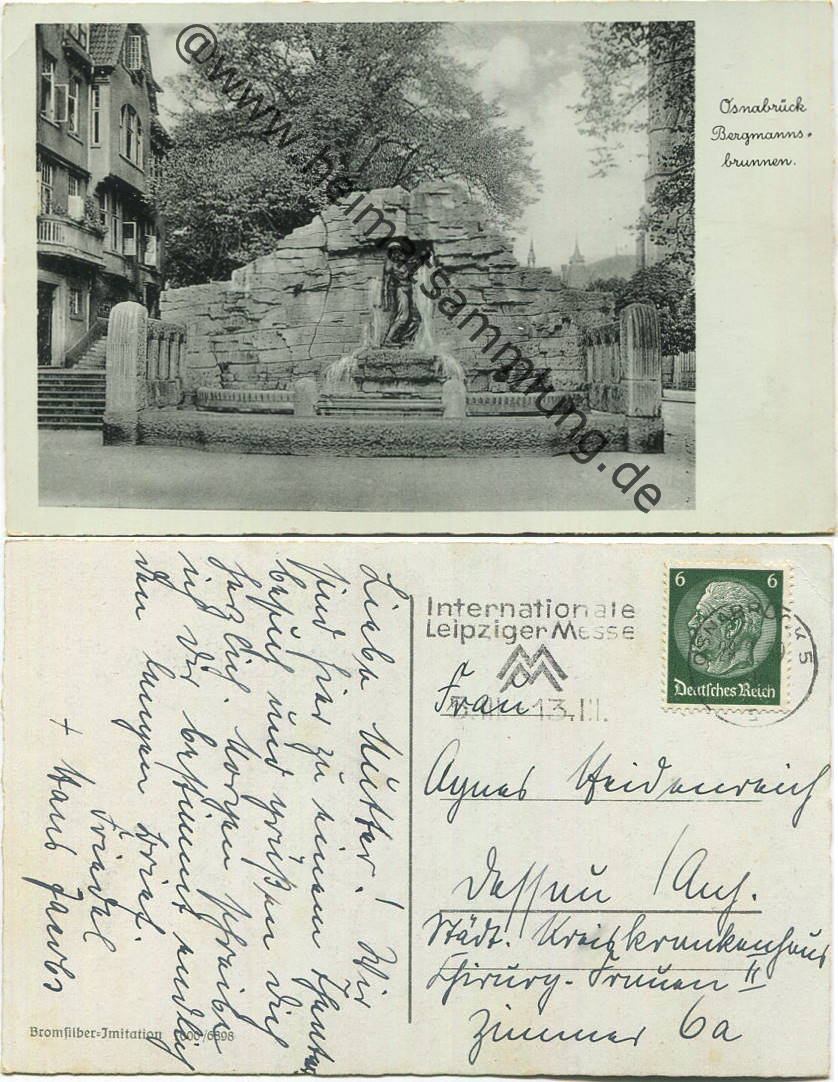 @www.heimatsammlung.de
Osnabrück
Bergmanns-
brunnen.
Liebe Mutter! Wir
sind hier zu einem
besuch und grüßen dich
herzlich. Morgen schreibe
ich dir bestimmt endlich
den langen Brief.
Friedel
+ Hans
Internationale
Leipziger Messe
13.III.
6 6
Deutsches Reich
OSNABRÜCK 5
Frau
Agnes Heidenreich
Dessau /Anh.
Städt. Kreiskrankenhaus
Chirurg. Frauen II
Zimmer 6a
Bromsilber=Imitation